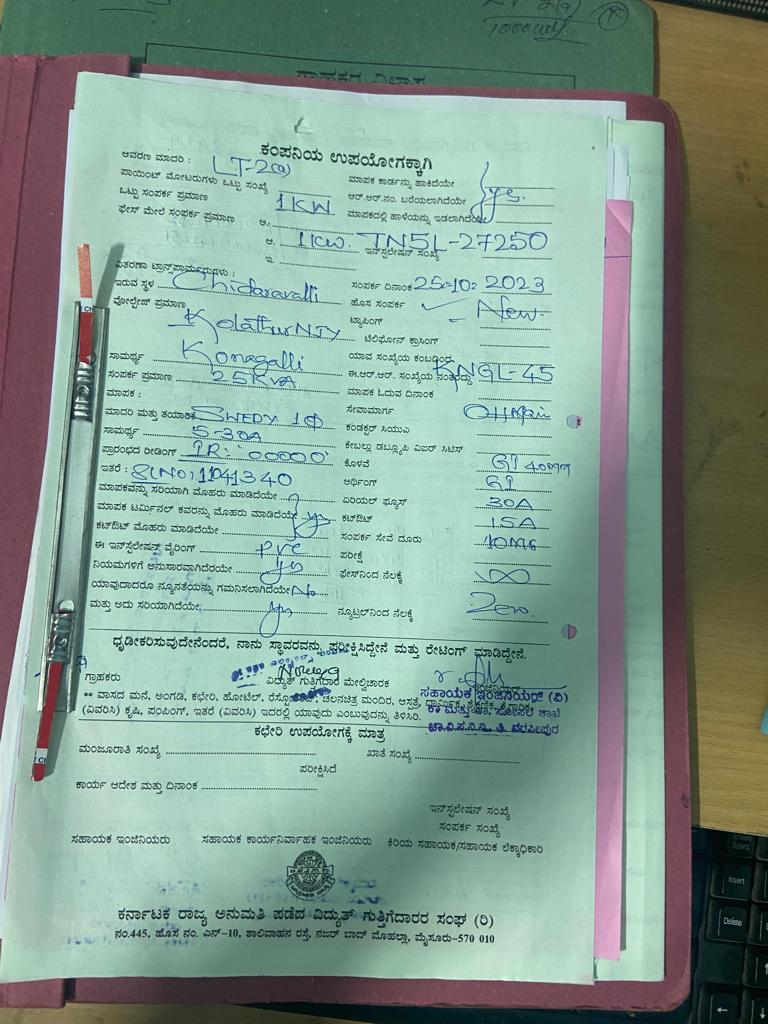 LT-2(a)
ಕಂಪನಿಯ ಉಪಯೋಗಕ್ಕಾಗಿ
ಆವರಣ ಮಾದರಿ : LT-2(a)
ಮಾಪಕ ಕಾರ್ಡನ್ನು ಹಾಕಿದೆಯೇ
ಪಾಯಿಂಟ್ ಮೋಟರುಗಳು ಒಟ್ಟು ಸಂಖ್ಯೆ
ಆರ್.ಆರ್.ನಂ. ಬರೆಯಲಾಗಿದೆಯೇ yes.
ಒಟ್ಟು ಸಂಪರ್ಕ ಪ್ರಮಾಣ 1KW
ಮಾಪಕದಲ್ಲಿ ಹಾಳೆಯನ್ನು ಇಡಲಾಗಿದೆಯೇ
ಫೇಸ್ ಮೇಲೆ ಸಂಪರ್ಕ ಪ್ರಮಾಣ ಅ.
ಆ. 1KW. ಇನ್‌ಸ್ಟಲೇಷನ್ ಸಂಖ್ಯೆ TN5L-27250
ಇ.
ವಿತರಣಾ ಟ್ರಾನ್ಸ್‌ಫಾರ್ಮರುಗಳು :
ಇರುವ ಸ್ಥಳ Chidaravalli
ಸಂಪರ್ಕ ದಿನಾಂಕ 25-10-2023
ವೋಲ್ಟೇಜ್ ಪ್ರಮಾಣ Kolathur NJY
ಹೊಸ ಸಂಪರ್ಕ New.
ಟ್ಯಾಪಿಂಗ್
ಟೆಲಿಫೋನ್ ಕ್ರಾಸಿಂಗ್
ಸಾಮರ್ಥ್ಯ Konagalli
ಯಾವ ಸಂಖ್ಯೆಯ ಕಂಬದಿಂದ
ಸಂಪರ್ಕ ಪ್ರಮಾಣ 25KVA
ಈ.ಆರ್.ಆರ್. ಸಂಖ್ಯೆಯ ನಂತರದ್ದು KNGL-45
ಮಾಪಕ :
ಮಾಪಕ ಓದುವ ದಿನಾಂಕ
ಮಾದರಿ ಮತ್ತು ತಯಾರಿಕೆ 1Φ
ಸೇವಾಮಾರ್ಗ OH Main
ಸಾಮರ್ಥ್ಯ 5-30A
ಕಂಡಕ್ಟರ್ ಸಿಯುಎ
ಪ್ರಾರಂಭದ ರೀಡಿಂಗ್ IR: 00000
ಕೇಬಲ್ಲು ಡಬ್ಲ್ಯೂಪಿ ಎಐರ್ ಸಿಟಿಸ್
ಇತರೆ : Sl No: 11041340
ಕೊಳವೆ GI 40mm
ಮಾಪಕವನ್ನು ಸರಿಯಾಗಿ ಮೊಹರು ಮಾಡಿದೆಯೇ
ಅರ್ಥಿಂಗ್ GI
ಮಾಪಕ ಟರ್ಮಿನಲ್ ಕವರನ್ನು ಮೊಹರು ಮಾಡಿದೆಯೇ yes
ಏರಿಯಲ್ ಫ್ಯೂಸ್ 30A
ಕಟ್‌ಔಟ್ ಮೊಹರು ಮಾಡಿದೆಯೇ
ಕಟ್‌ಔಟ್ 15A
ಈ ಇನ್‌ಸ್ಟಲೇಷನ್ ವೈರಿಂಗ್ PVC
ಸಂಪರ್ಕ ಸೇವೆ ದೂರು
ನಿಯಮಗಳಿಗೆ ಅನುಸಾರವಾಗಿದೆಯೇ yes
ಪರೀಕ್ಷೆ
ಯಾವುದಾದರೂ ನ್ಯೂನತೆಯನ್ನು ಗಮನಿಸಲಾಗಿದೆಯೇ No
ಫೇಸ್‌ನಿಂದ ನೆಲಕ್ಕೆ ∞
ಮತ್ತು ಅದು ಸರಿಯಾಗಿದೆಯೇ yes
ನ್ಯೂಟ್ರಲ್‌ನಿಂದ ನೆಲಕ್ಕೆ Zero.
ಧೃಡೀಕರಿಸುವುದೇನೆಂದರೆ, ನಾನು ಸ್ಥಾವರವನ್ನು ಪರೀಕ್ಷಿಸಿದ್ದೇನೆ ಮತ್ತು ರೇಟಿಂಗ್ ಮಾಡಿದ್ದೇನೆ.
ಗ್ರಾಹಕರು
ವಿದ್ಯುತ್ ಗುತ್ತಿಗೆದಾರ ಮೇಲ್ವಿಚಾರಕ
ಸಹಾಯಕ ಇಂಜಿನಿಯರ್ (ವಿ)
** ವಾಸದ ಮನೆ, ಅಂಗಡಿ, ಕಛೇರಿ, ಹೋಟೆಲ್, ಚಲನಚಿತ್ರ ಮಂದಿರ, ಆಸ್ಪತ್ರೆ,
(ವಿವರಿಸಿ) ಕೃಷಿ, ಪಂಪಿಂಗ್, ಇತರೆ (ವಿವರಿಸಿ) ಇದರಲ್ಲಿ ಯಾವುದು ಎಂಬುವುದನ್ನು ತಿಳಿಸಿರಿ.
ಕಛೇರಿ ಉಪಯೋಗಕ್ಕೆ ಮಾತ್ರ
ಮಂಜೂರಾತಿ ಸಂಖ್ಯೆ
ಖಾತೆ ಸಂಖ್ಯೆ
ಪರೀಕ್ಷಿಸಿದೆ
ಕಾರ್ಯ ಆದೇಶ ಮತ್ತು ದಿನಾಂಕ
ಇನ್‌ಸ್ಟಲೇಷನ್ ಸಂಖ್ಯೆ
ಸಂಪರ್ಕ ಸಂಖ್ಯೆ
ಸಹಾಯಕ ಇಂಜಿನಿಯರು ಸಹಾಯಕ ಕಾರ್ಯನಿರ್ವಾಹಕ ಇಂಜಿನಿಯರು ಕಿರಿಯ ಸಹಾಯಕ/ಸಹಾಯಕ ಲೆಕ್ಕಾಧಿಕಾರಿ
ಕರ್ನಾಟಕ ರಾಜ್ಯ ಅನುಮತಿ ಪಡೆದ ವಿದ್ಯುತ್ ಗುತ್ತಿಗೆದಾರರ ಸಂಘ (ರಿ)
ನಂ.445, ಹೊಸ ನಂ. ಎನ್-10, ಶಾಲಿವಾಹನ ರಸ್ತೆ, ನಜರ್ ಬಾದ್ ಮೊಹಲ್ಲಾ, ಮೈಸೂರು-570 010
Insert
Delete